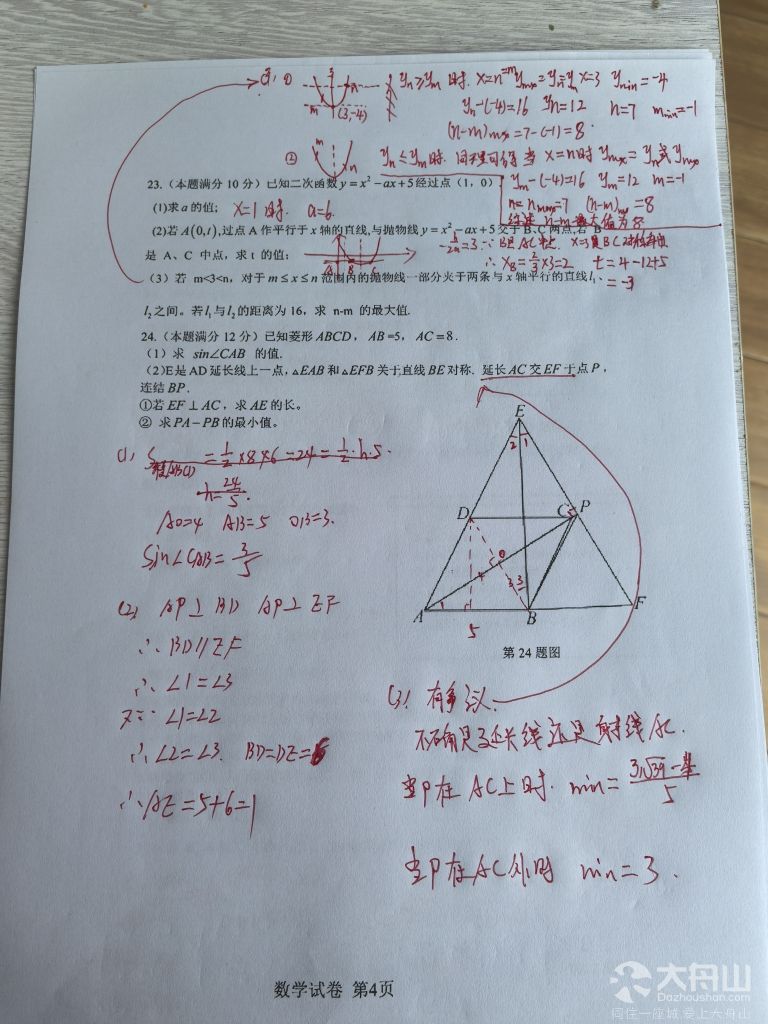 (3), ①
(3,-4)
yn≥ym 时. x=n ymax=yn x=3 ymin=-4
yn-(-4)=16 yn=12 n=7 mmin=-1
(n-m)max=7-(-1)=8
②
yn≤ym时. 同理可得当
ym-(-4)=16 ym=12 m=-1
n=nmax=7 (n-m)max=8
综述 n-m最大值为8
23.（本题满分 10 分）已知二次函数 y=x²-ax+5经过点（1，0）
(1)求a的值； x=1时. a=6.
(2)若 A(0,t),过点 A 作平行于 x 轴的直线,与抛物线 y=x²-ax+5交于B、C两点,若 B
是 A、C 中点，求 t 的值；
-b/2a=3 ∵B是AC中点.
∴xB=2/3×3=2 t=4-12+5
=-3
（3）若 m<3<n，对于 m≤x≤n 范围内的抛物线一部分夹于两条与 x 轴平行的直线l₁、
l₂之间。若l₁与l₂的距离为 16，求 n-m 的最大值.
24.（本题满分 12 分）已知菱形 ABCD， AB =5， AC=8．
（1）求 sin∠CAB 的值.
（2)E是AD延长线上一点，△EAB 和△EFB 关于直线BE对称．延长AC交EF于点P，
连结BP．
①若EF⊥AC，求AE的长。
② 求PA−PB的最小值。
(1), =1/2×8×6=24=1/2·h·5.
h=24/5.
AO=4 AB=5 OB=3.
sin∠CAB=3/5
(2) AP⊥BD AP⊥EF
∴BD//EF
∴∠1=∠3
又∵∠1=∠2
∴∠2=∠3. BD=DE=6
∴AE=5+6=11
E
2 1
D
C
P
O
4
3 3
1
A
5
B
F
第 24 题图
(3), 有争议.
不确定是延长线还是射线AC.
当P在AC上时. min=
5
当P在AC外时 min=3.
数学试卷 第4页
大舟山
Dazhoushan.com
同住一座城 爱上大舟山